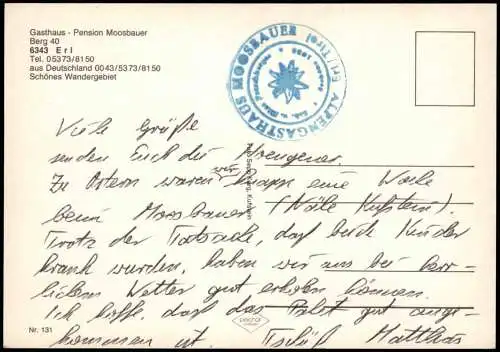 Gasthaus - Pension Moosbauer
Berg 40
6343 Erl
Tel. 05373/8150
aus Deutschland 0043/5373/8150
Schönes Wandergebiet
ALPENGASTHAUS MOOSBAUER
Erl/Tirol
Viele Grüße
senden Euch die
Zu Ostern waren wir knapp eine Woche
beim Moosbauer (Nähe Kufstein).
Trotz der Tatsache, daß beide Kinder
krank wurden, haben wir uns bei herr-
lichem Wetter gut erholen können.
Ich hoffe, daß das Paket gut ange-
kommen ist. Tschüß Matthias
Nr. 131